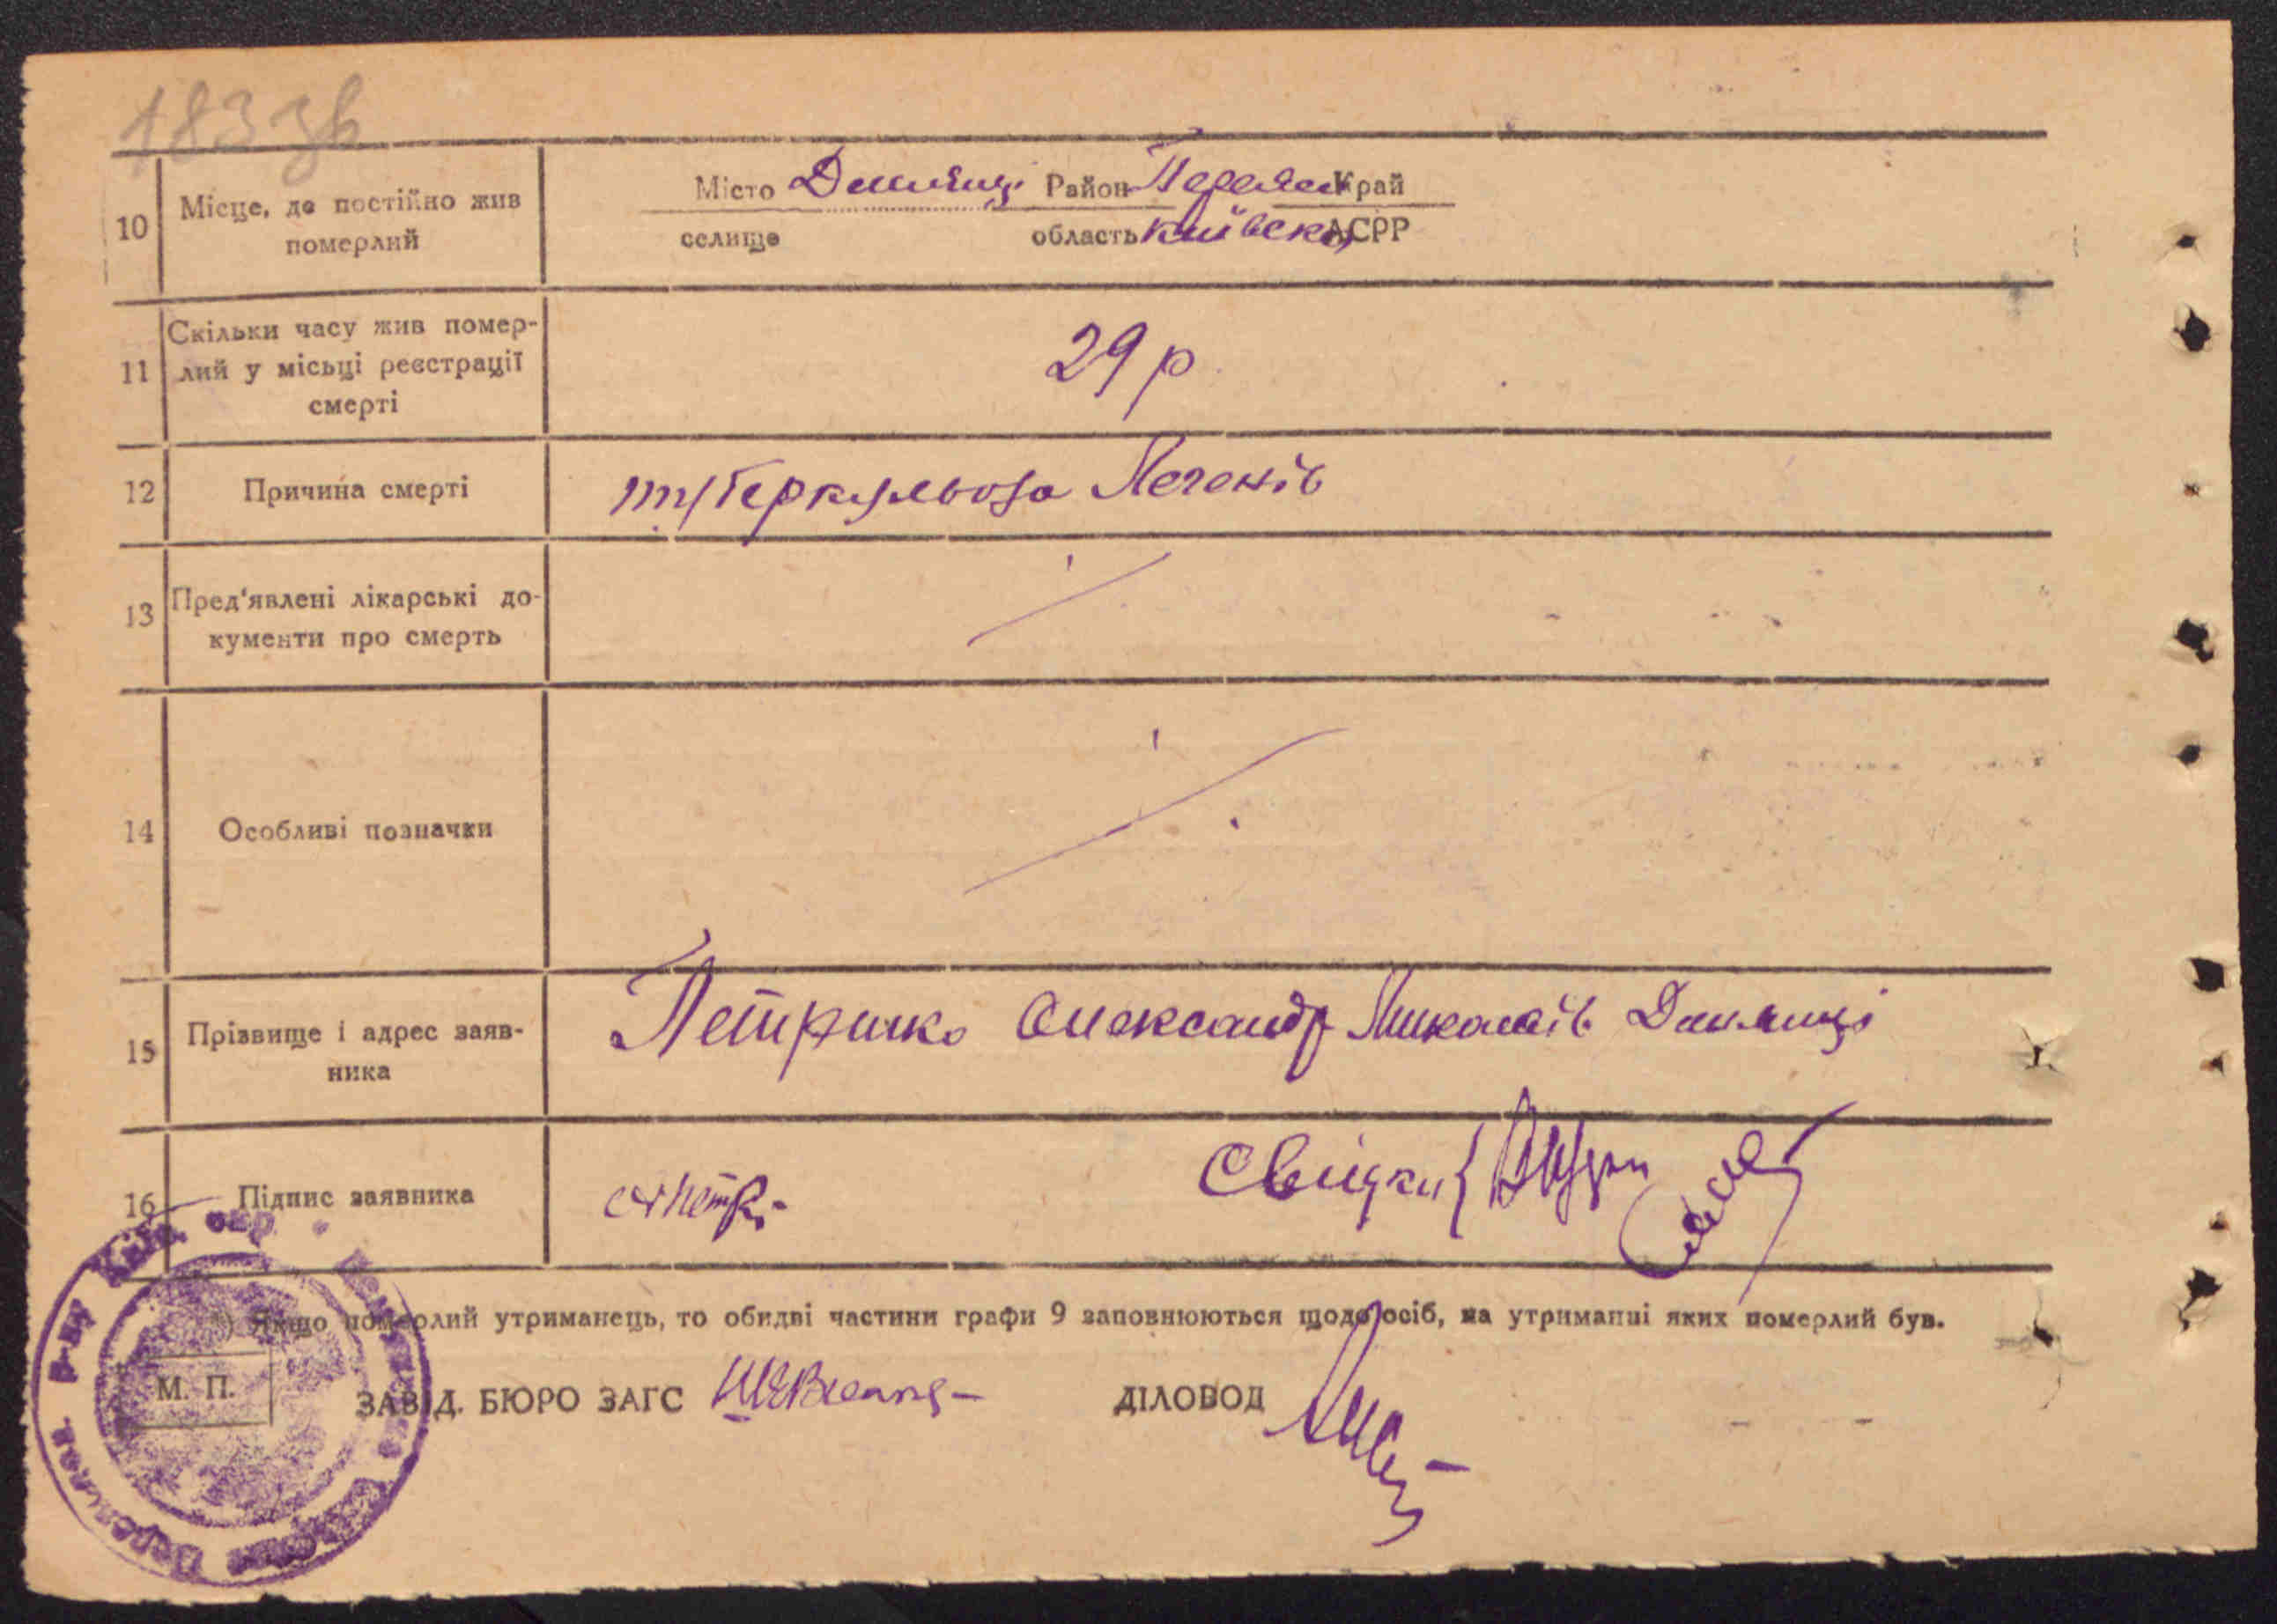 183 зв
10 Місце, де постійно жив померлий
Місто Демянці Район Переясл Край
селище область Київська АСРР
11 Скільки часу жив помер-
лий у місьці реєстрації
смерті
29 р
12 Причина смерті туберкульоза Легенів
13 Пред'явлені лікарські до-
кументи про смерть
14 Особливі позначки
15 Прізвище і адрес заяв-
ника
Петричко Олександр Миколаїв Демянці
16 Підпис заявника
Свідки
*) Якщо померлий утриманець, то обидві частини графи 9 заповнюються щодо осіб, на утриманні яких померлий був.
М. П.
ЗАВІД. БЮРО ЗАГС ДІЛОВОД
Переяслав. р-ну Київ. окр.